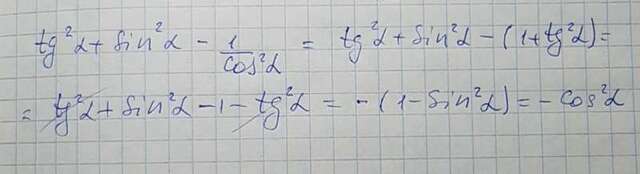 tg²α + sin²α - 1/cos²α = tg²α + sin²α - (1 + tg²α) =
= tg²α + sin²α - 1 - tg²α = - (1 - sin²α) = - cos²α